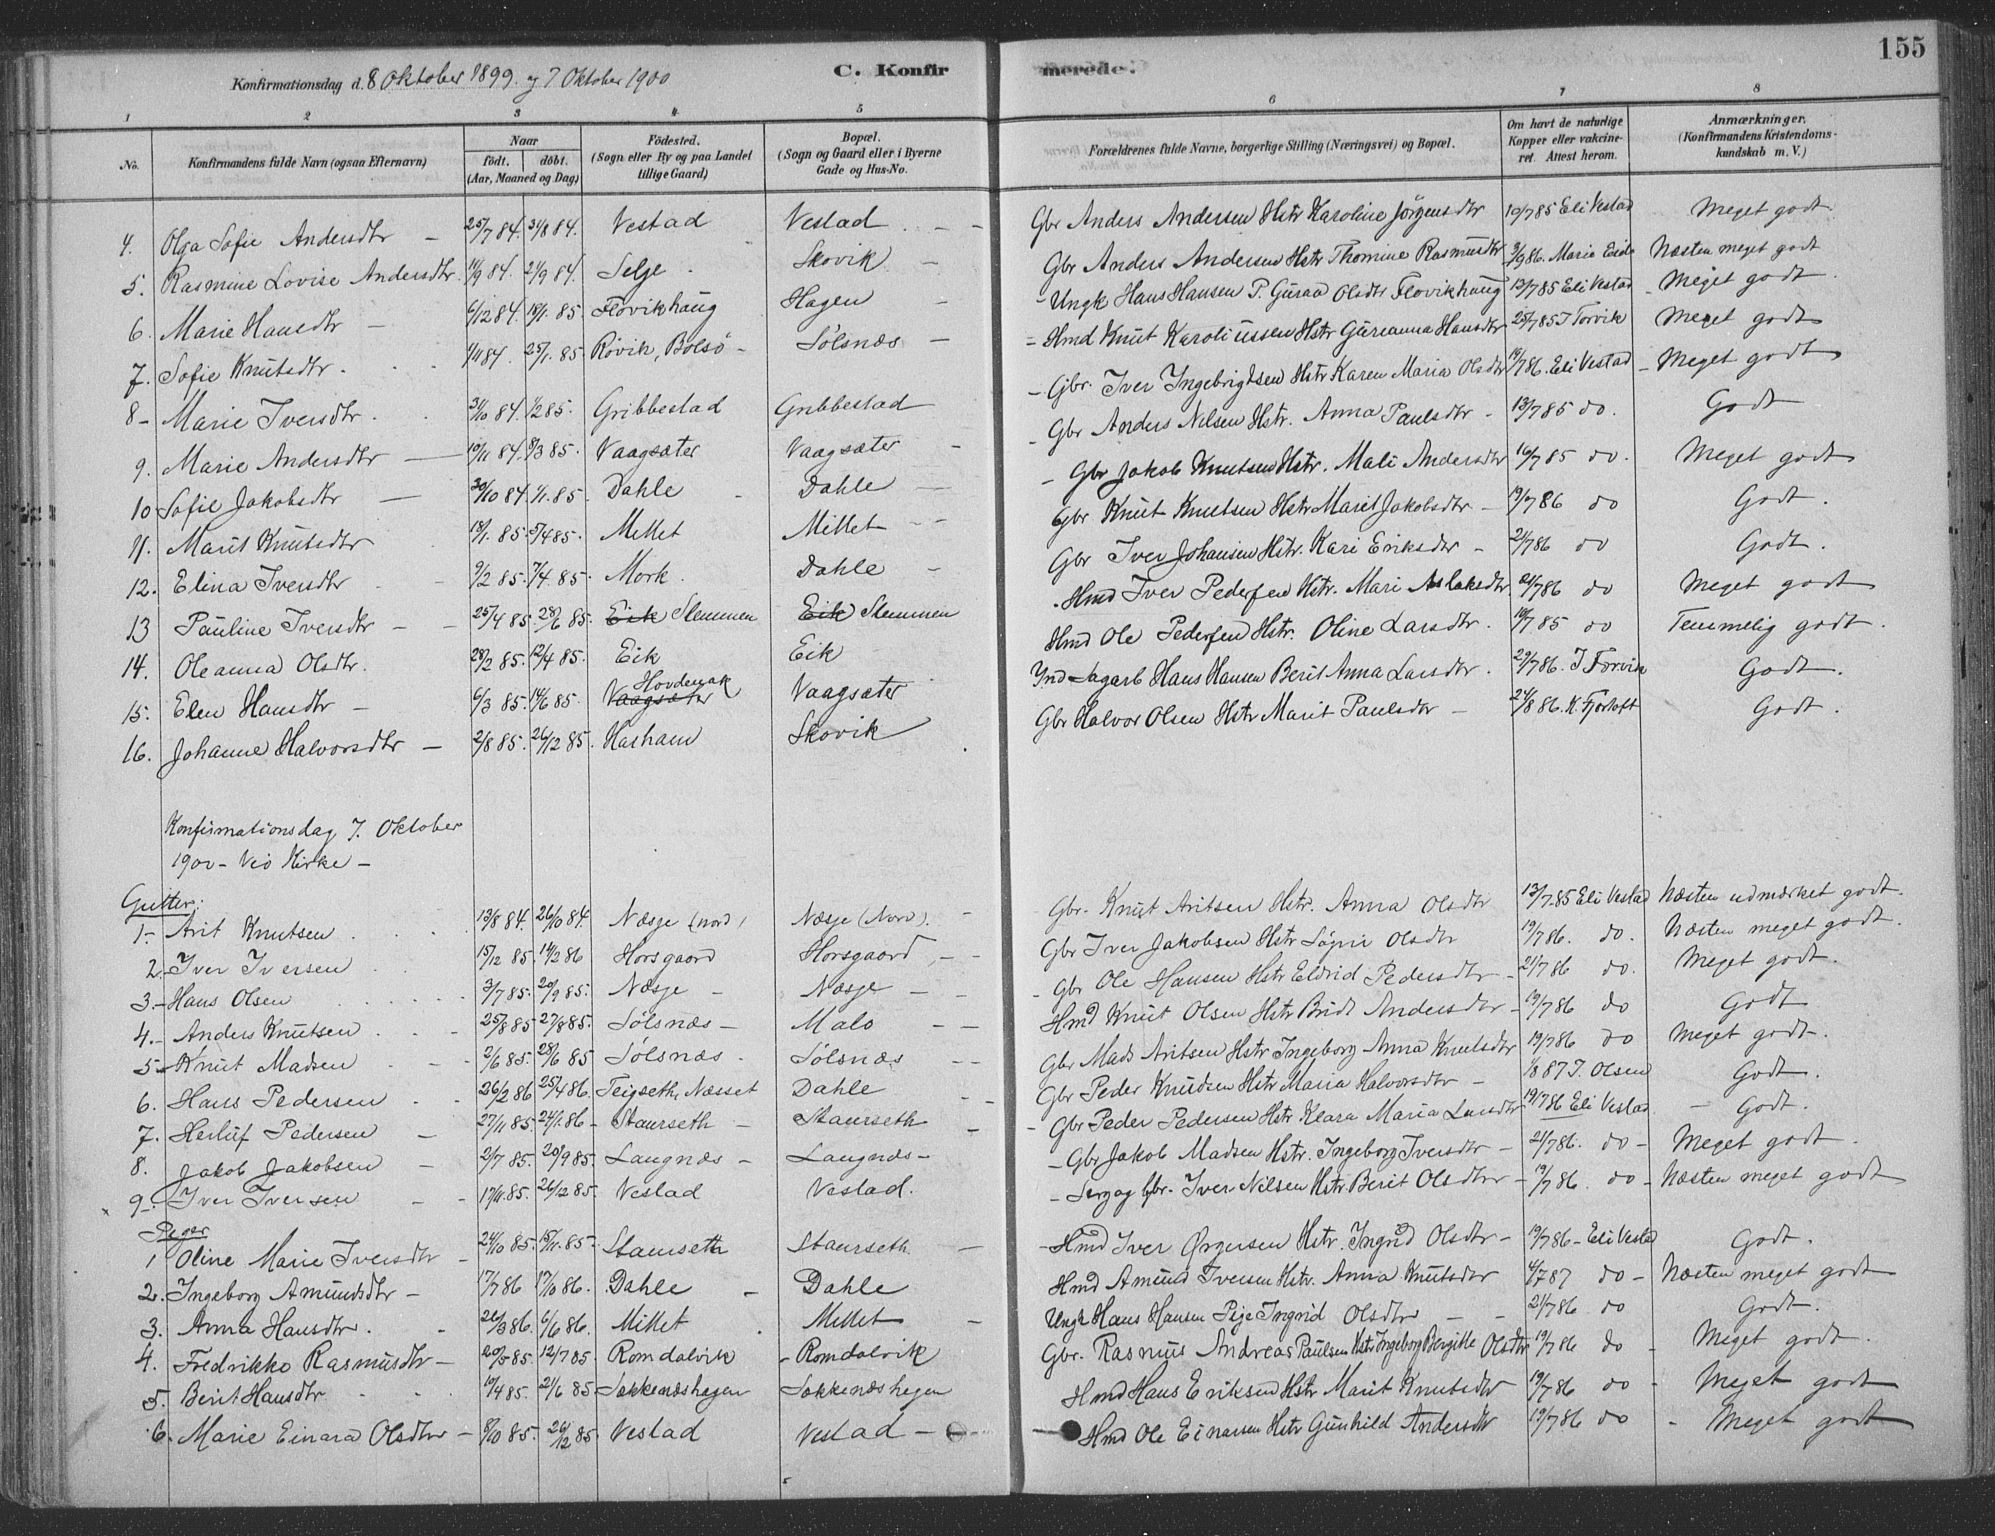 155
Konfirmationsdag d. 8 Oktober 1899. og 7 Oktober 1900
C. Konfirmerede.
1 2 3 4 5 6 7 8
No. Konfirmandens fulde Navn (ogsaa Efternavn) Naar födt. döbt. (Aar, Maaned og Dag) Födested. (Sogn eller By og paa Landet tillige Gaard) Bopæl. (Sogn og Gaard eller i Byerne Gade og Hus-No. Forældrenes fulde Navne, borgerlige Stilling (Næringsvei) og Bopæl. Om havt de naturlige Kopper eller vakcineret. Attest herom. Anmærkninger. (Konfirmandens Kristendomskundskab m. V.)
4. Olga Sofie Andersdtr - 25/7 84. 31/8 84. Vestad Vestad Gbr Anders Andersen Hstr Karoline Jörgensdtr 10/7 85 Eli Vestad Meget godt.
5. Rasmine Lovise Andersdtr. 11/9 84. 21/9 84. Selje Skovik Gbr Anders Andersen Hstr Thomine Rasmusdtr 3/9 86. Marie Eide Næsten meget godt
6. Marie Hansdtr - 6/12 84. 18/1. 85. Flovikhaug Hagen - Ungk Hans Hansen P. Guraa Olsdtr Flovikhaug 13/7 85 Eli Vestad Meget godt.
7. Sofie Knutsdtr. 1/11 84. 25/1. 85. Røvik, Bolsö - Sølsnæs - Hmd Knut Karoliussen Hstr Gurianna Hansdtr 25/7 85 I Torvik Meget godt
8 - Marie Iversdtr. 31/10 84. 1/2 85. Gribbestad Gribbestad - Gbr. Iver Ingebrigtsen Hstr Karen Maria Olsdtr 19/7 86. Eli Vestad - Meget godt
9. Marie Andersdtr - 10/11 84. 8/3 85. Vaagsæter Vaagsæter - Gbr Anders Nilsen Hstr. Anna Paulsdtr - 13/7 85 do. Godt
10. Sofie Jakobsdtr - 30/10 84. 1/1. 85. Dahle Dahle - Gbr Jakob Knutsen Hstr. Mali Andersdtr 16/7 85 do. Meget godt
11. Marit Knutsdtr 18/1. 85. 5/4 85. Mittet Mittet Gbr Knut Knutsen Hstr Marit Jakobsdtr - 19/7 86 do Godt.
12. Elina Iversdtr 9/2 85. 7/4 85. Mork. Dahle - Gbr Iver Johansen Hstr. Kari Eriksdtr - 21/7 86 do Godt.
13 Pauline Iversdtr - - 25/4 85. 28/6 85. Eik Slemmen Eik Slemmen Hmd Iver Pedersen Hstr. Mari Aslaksdtr 21/7 86 do Meget godt
14. Oleanna Olsdtr. 28/2 85. 12/4 85. Eik Eik Hmd Ole Pedersen Hstr. Oline Larsdtr. 10/7 85 do Temmelig godt.
15. Elen Hansdtr - 6/3 85. 14/6 85. Vaagsæter Hovdenak Vaagsæter Ind. Dagarb Hans Hansen Berit Anna Larsdtr. 29/7 86. I Torvik Godt.
16. Johanne Halvorsdtr - 2/8 85. 26/12 85. Hasham Skovik Gbr Halvor Olsen Hstr Marit Paulsdtr - 24/8 86. K. Fjørtoft Godt.
Konfirmationsdag 7. Oktober
1900 - Veö Kirke -
Gutter:
1. - Arit Knutsen 13/8 84. 26/10 84. Næsje (nord) Næsje (Nord). - Gbr. Knut Aritsen Hstr. Anna Olsdtr 13/7. 85 Eli Vestad Næsten udmærket godt.
2. Iver Iversen 15/12 85. 14/2 86 Horsgaard Horsgaard, - - Gbr Iver Jakobsen Hstr Sögni Olsdtr 19/7 86. do. Næsten meget godt.
3. - Hans Olsen 3/7 85. 20/9 85. Næsje - Næsje - - Gbr Ole Hansen Hstr Eldrid Pedersdtr - 21/7 86 do. Meget godt.
4. - Anders Knutsen 25/8 85 27/8 85. Sølsnæs - Malo - - Hmd Knut Olsen Hstr Brit Andersdtr - 19/7 86 do Godt
5. Knut Madsen 2/6 85. 28/6 85 Sölsnæs. Sölsnæs - - Gbr Mads Aritsen Hstr Ingeborg Anna Knutsdtr 19/7 86 do Meget godt.
6. Hans Pedersen 26/2 86 25/4 86. Teigseth, Næsset Dahle - - Gbr Peder Knudsen Hstr Maria Halvorsdtr - 1/8 87 T. Olsen Godt.
7. Herluf Pedersen - 27/11 85. 24/1. 86 - Staurseth - Staurseth - Gbr Peder Pedersen Hstr Klara Maria Larsdtr 19/7 86 Eli Vestad - Godt.
8. Jakob Jakobsen - 2/7 85. 20/9 85. Langnæs - Langnæs - - Gbr Jakob Madsen Hstr. Ingeborg Iversdtr - 21/7 86. do - Meget godt.
9. - Iver Iversen - - 17/11. 85. 26/12 85. Vestad Vestad. - Serg og Gbr. Iver Nilsen Hstr Berit Olsdtr - 19/7 86. do - Næsten meget godt
Piger
1 Oline Marie Iversdtr - 24/10 85. 15/11. 85. Staurseth Staurseth - - Hmd Iver Ørgersen Hstr. Ingrid Olsdtr - 19/7 86 - Eli Vestad Godt.
2. Ingeborg Amundsdtr - 17/7 86 17/10 86. Dahle - Dahle Hmd Amund Iversen Hstr. Anna Knutsdtr 4/7 87 do - Næsten meget godt
3. Anna Hansdtr. 26/3 86. 6/6 86. Mittet Mittet - Ungk Hans Hansen Pige Ingrid Olsdtr - 21/7 86 do Godt.
4. Fredrikke Rasmusdtr - 20/5 85. 12/7 85. Romdalvik - Romdalvik Gbr. Rasmus Andreas Paulsen Hstr Ingeborg Bergitte Olsdtr 19/7 86 do - Meget godt.
5. Berit Hansdtr 19/4 85. 21/6 85. Sækkenæshagen Sækkenæshagen Hmd Hans Eriksen Hstr Marit Knutsdtr 19/7 86 do - Meget godt
6. Marie Einara Olsdtr - 8/10 85. 26/12 85 Vestad Vestad - Hmd Ole Einarsen Hstr Gunhild Andersdtr 19/7 86 do - Meget godt